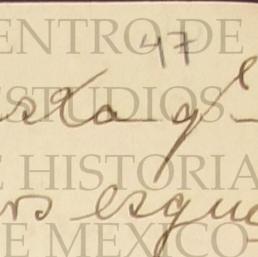 CENTRO DE
47
ESTUDIOS
sta q^e
DE HISTORIA
os esque
DE MEXICO